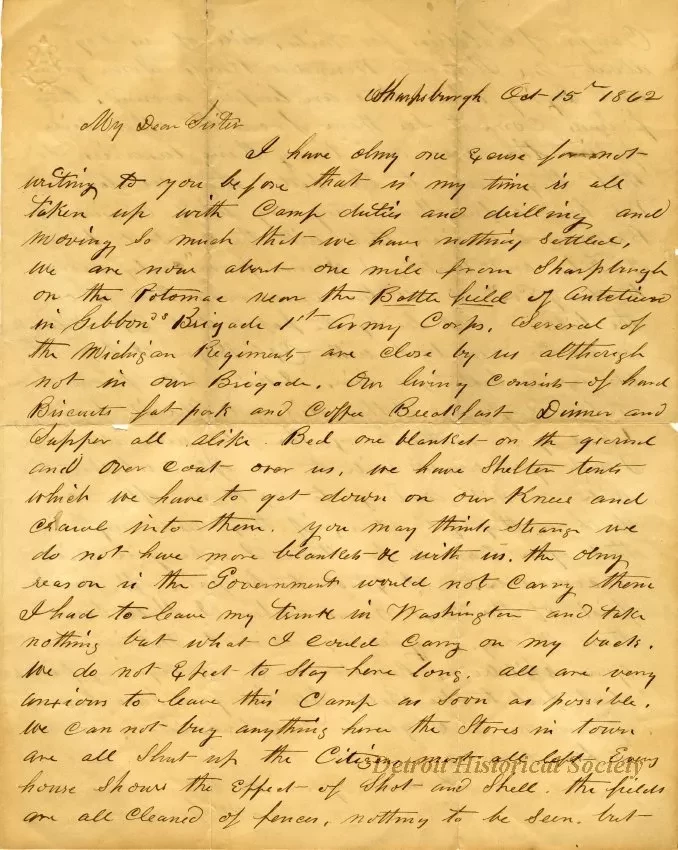 Sharpsburgh Oct 15th 1862
My Dear Sister
I have olny one Excuse for not
writing to you before that is my time is all
taken up with Camp duties and drilling and
moving so much that we have nothing settled,
We are now about one mile from Sharpsburgh
on the Potomac near the Battle field of Antetiem
in Gibbon's Brigade 1st Army Corps. Several of
the Michigan Regiments are close by us although
not in our Brigade. Our living Consists of hard
Biscuits fat pork and Coffee Breakfast Dinner and
Supper all alike. Bed one blanket on the ground
and over coat over us. we have Shelter tents
which we have to get down on our Knees and
crawl into them. you may think Strange we
do not have more blankets &c with us. the olny
reason is the Government would not carry them
I had to leave my trunk in Washington and take
nothing but what I could carry on my back.
We do not Expect to Stay here long. all are very
anxious to leave this Camp as soon as possible.
We can not buy anything here the Stores in town
are all Shut up the Citizens most all left Every
house Shows the Effect of Shot and Shell. the fields
are all cleaned of fences, nothing to be seen. but
Detroit Historical Society